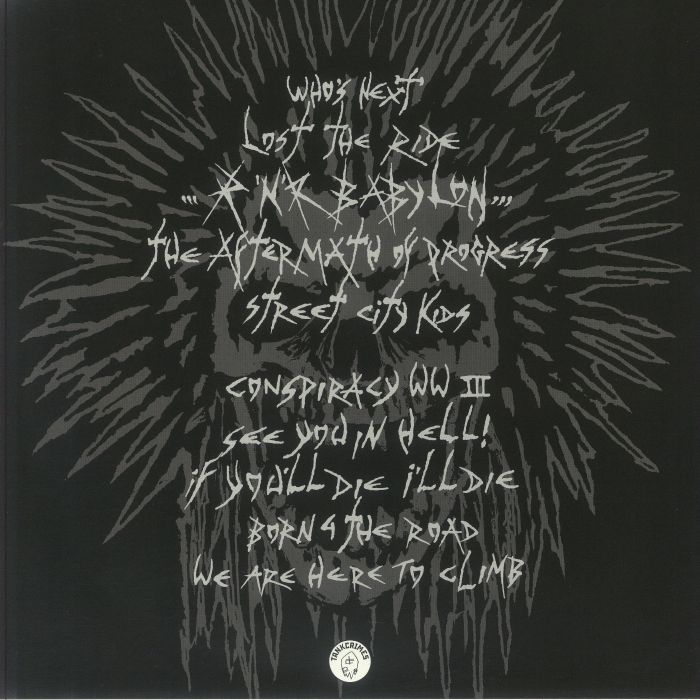 WHO'S NEXT
LOST THE RIDE
... R'N'R BABYLON ...
THE AFTERMATH OF PROGRESS
STREET CITY KIDS
CONSPIRACY WW III
SEE YOU IN HELL!
IF YOU'LL DIE I'LL DIE
BORN 4 THE ROAD
WE ARE HERE TO CLIMB
TANKCRIMES